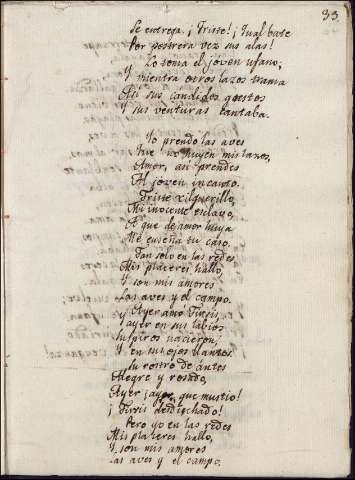 33
Se entrega. ¡Triste! ¡Qual bate
Por postrera vez sus alas!
Lo toma el joven ufano;
Y mientra otros lazos trama
Asi sus candidos gustos
Y sus venturas cantaba.
Yo prendo las aves
Que no huyen mis lazos,
Amor, asi prendes
Al joven incauto.
Triste xilguerillo,
Mi inocente esclavo,
A que de amor huya
Me enseña tu caso.
Tan solo en las redes
Mis placeres hallo,
Y son mis amores
Las aves y el campo.
Ayer amó Tirsis,
Y ayer en sus labios
Suspiros nacieron,
Y en sus ojos llantos.
Su rostro de antes
Alegre y rosado,
Ayer ¡ay, que mustio!
¡Tirsis desdichado!
Pero yo en las redes
Mis placeres hallo,
Y son mis amores
Las aves y el campo.